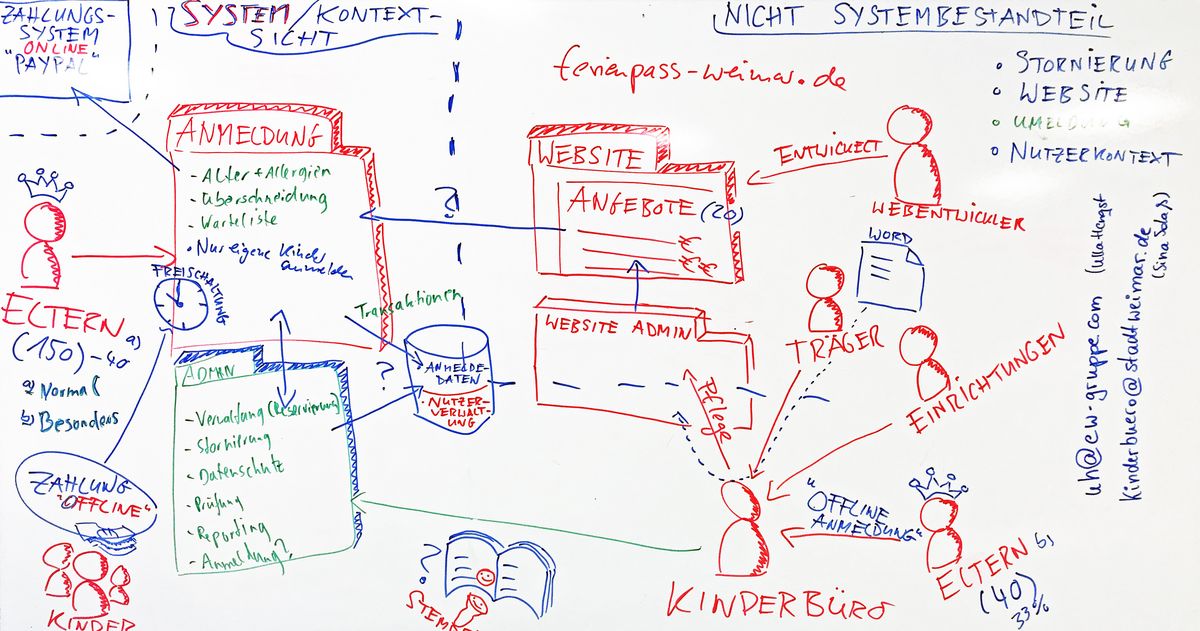 ZAHLUNGS-
SYSTEM
"ONLINE"
PAYPAL
SYSTEM/KONTEXT-
SICHT
NICHT SYSTEMBESTANDTEIL
• STORNIERUNG
• WEBSITE
• UMELDUNG
• NUTZERKONTEXT
ferienpass-weimar.de
ANMELDUNG
- Alter + Allergien
- Überschneidung
- Warteliste
• Nur eigene Kinder
anmelden
FREISCHALTUNG
ELTERN a)
(150) - 40
a) Normal
b) Besonders
ZAHLUNG
"OFFLINE"
KINDER
ADMIN
- Verwaltung (Reservierung)
- Stornierung
- Datenschutz
- Prüfung
- Reporting
- Anmeldung?
Transaktionen
?
?
ANMELDE-
DATEN
NUTZER-
VERWALT-
UNG
WEBSITE
ANGEBOTE (20)
€
€€
WEBSITE ADMIN
Pflege
ENTWICKELT
WEBENTWICKLER
WORD
TRÄGER
EINRICHTUNGEN
"OFFLINE
ANMELDUNG"
ELTERN b)
(40)
33%
KINDERBÜRO
?
uh@cw-gruppe.com
kinderbuero@stadtweimar.de